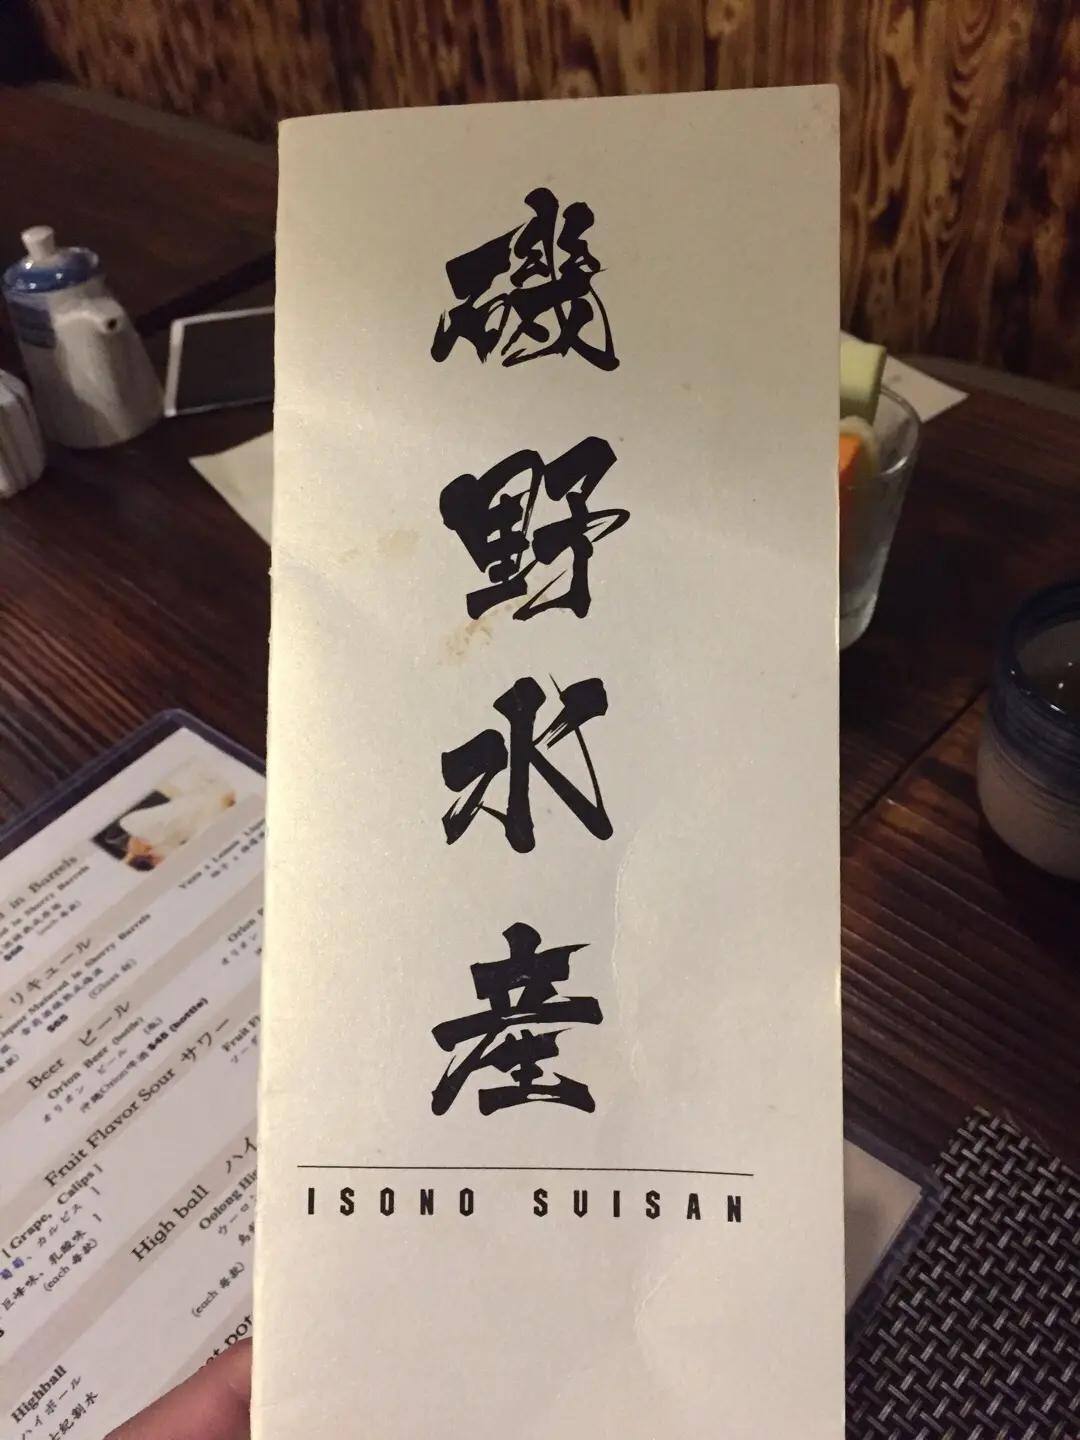 磯
野
水
産
ISONO SUISAN
in Barrels
in Sherry Barrels
(each 每款)
リキュール
Liquor Matured in Sherry Barrels
(Glass 杯)
$65
Beer ビール
Orion Beer (bottle)
オリオン ビール (瓶)
沖繩Orion啤酒 $48 (bottle)
Fruit Flavor Sour サワー
| Grape, Calips |
葡萄、カルピス |
巨峰味、乳酸味 |
(each 每款)
High ball ハイ
Oolong Hi
ウーロン
(each 每款)
Highball
ハイボール
Yuzu & Lemon
Orion
オリオン
Fruit Fl